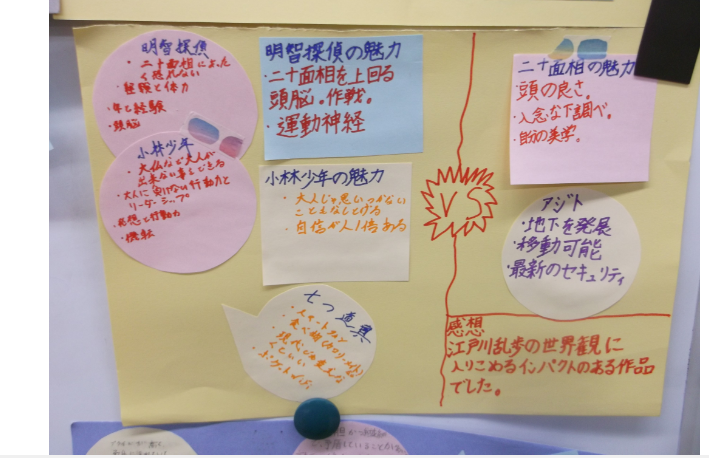 明智探偵
・二十面相に
く恐れない
・経験と体力
・年と経験
・頭脳
小林少年
・大仏など大人が
出来ない事もできる
・大人に負けない行動力と
リーダーシップ
・発想と行動力
・機転
明智探偵の魅力
・二十面相を上回る
頭脳。作戦。
・運動神経
小林少年の魅力
・大人じゃ思いつかない
こともなしとげる
・自信が人1倍ある
七つ道具
・食べ物
現代
くらい
VS
二十面相の魅力
頭の良さ。
・入念な下調べ。
・自分の美学。
アジト
・地下を発展
・移動可能
・最新のセキュリティ
感想
江戸川乱歩の世界観に
入りこめるインパクトのある作品
でした。